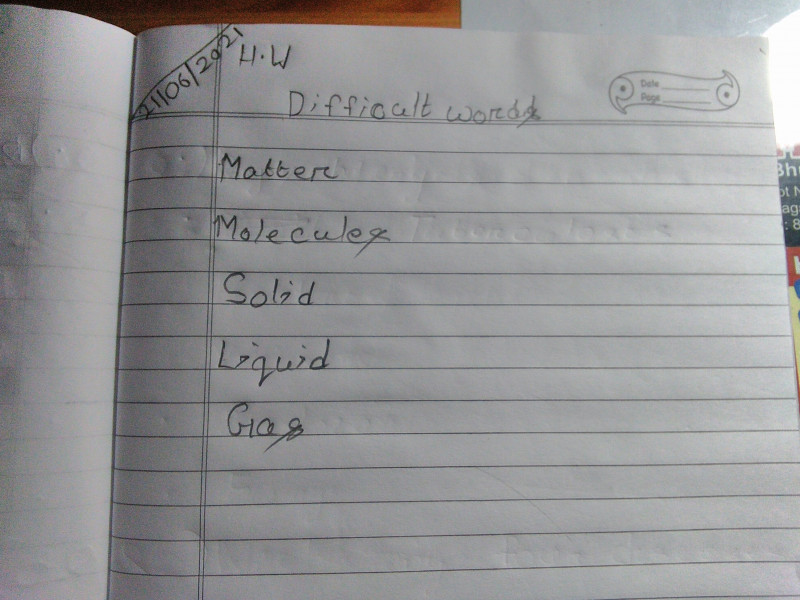 21/06/2021
H.W
Date
Page
Difficult words
Matter
Molecules
Solid
Liquid
Gas